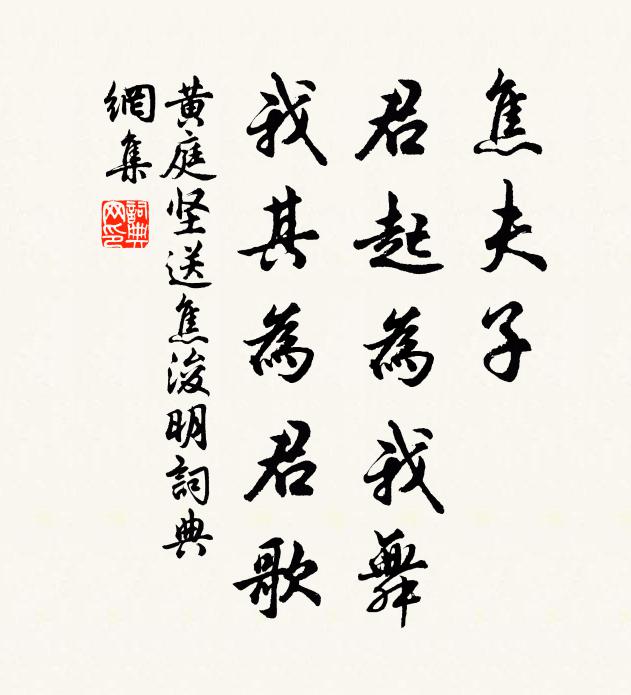 焦夫子
君起為我舞
我其為君歌
黄庭坚送焦浚明詞典
網集
詞典网印